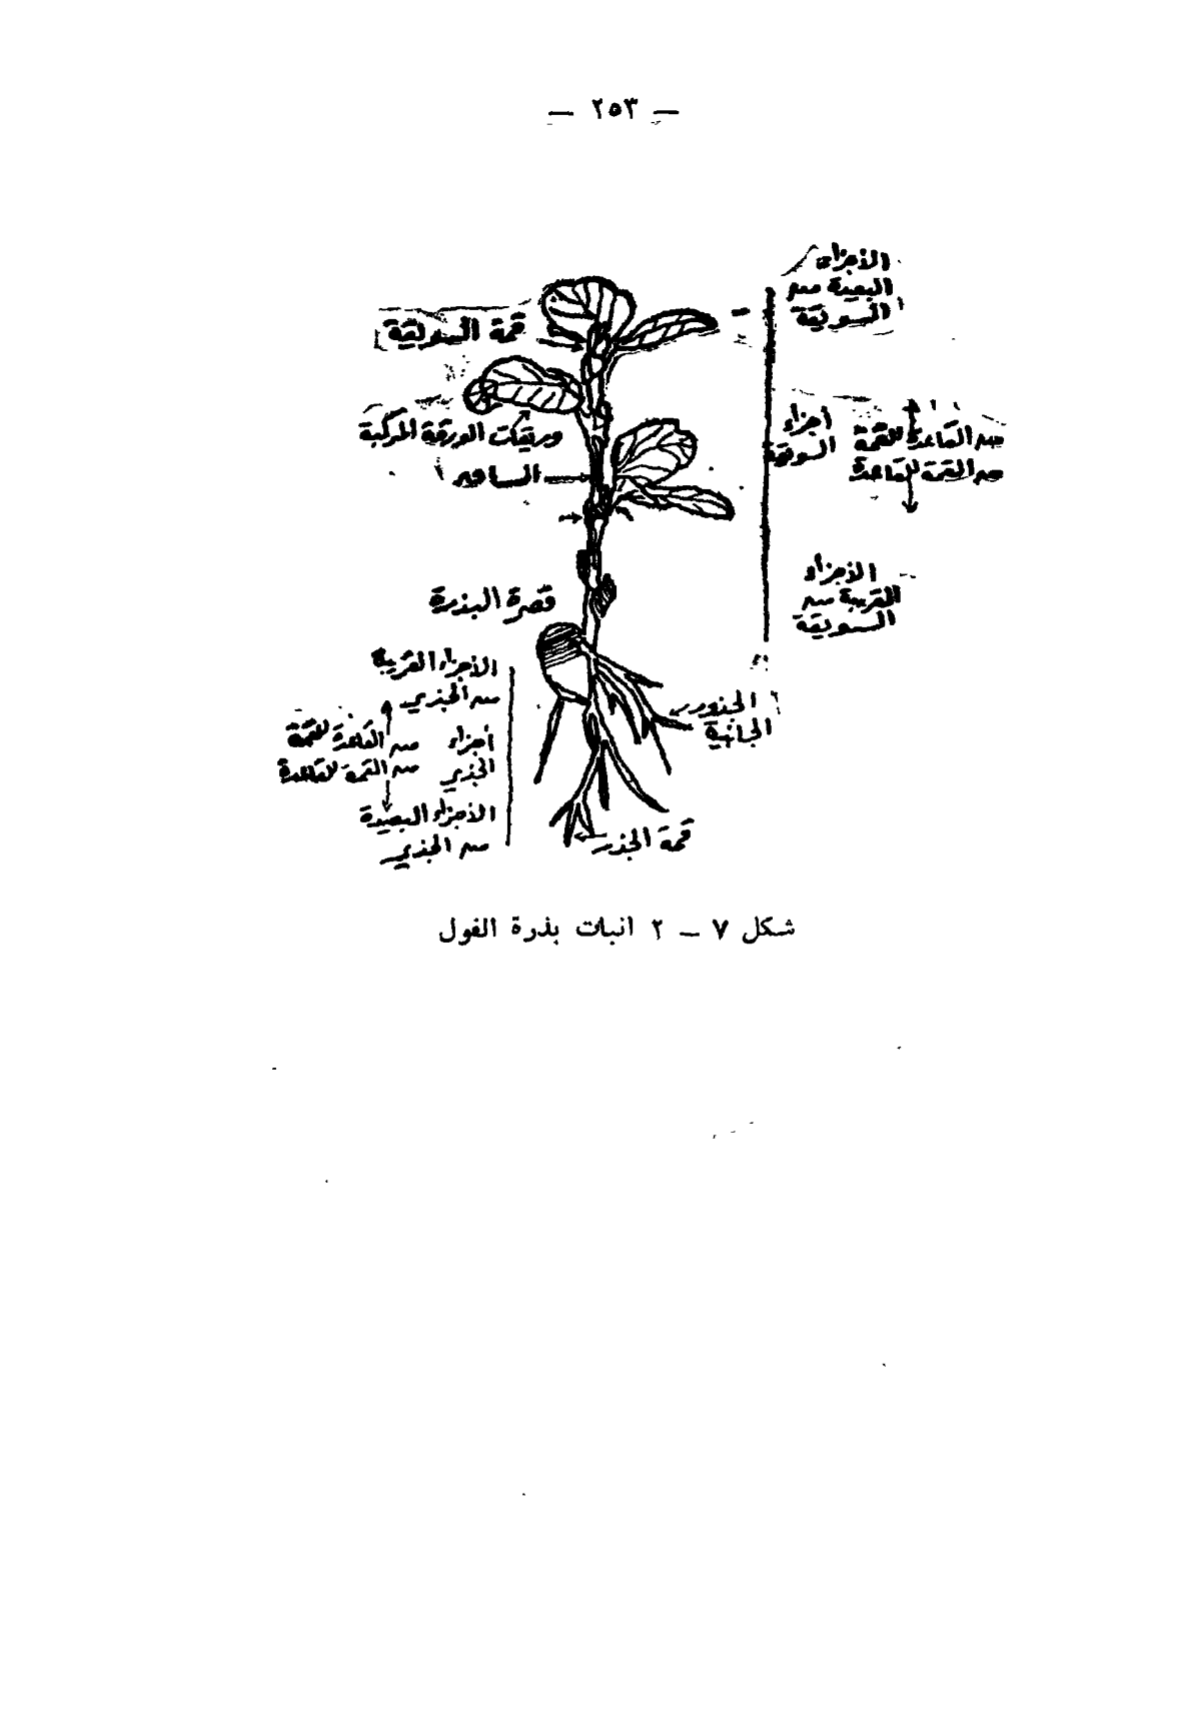 — ٢٥٣ —
الأجزاء
البعيدة من
السويقة
قمة السويقة
أجزاء
السويقة
من القاعدة للقمة
من القمة للقاعدة
وريقات الورقة المركبة
الساق
الأجزاء
القريبة من
السويقة
قصرة البذرة
الأجزاء القريبة
من الجذير
الجذور
الجانبية
أجزاء
الجذير
من القاعدة للقمة
من القمة للقاعدة
الأجزاء البعيدة
من الجذير
قمة الجذر
شكل ٧ — ٢ انبات بذرة الفول